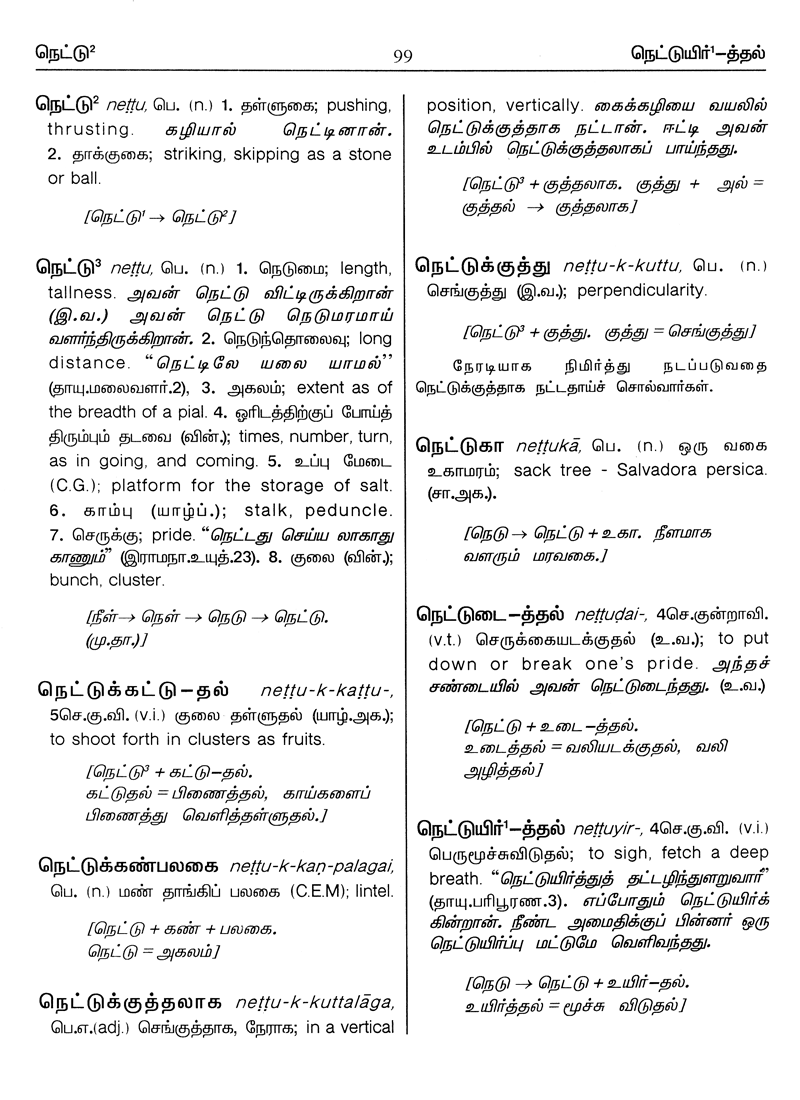 நெட்டு²
99
நெட்டுயிர்¹–த்தல்
நெட்டு² neṭṭu, பெ. (n.) 1. தள்ளுகை; pushing,
thrusting. கழியால் நெட்டினான்.
2. தாக்குகை; striking, skipping as a stone
or ball.
[நெட்டு¹ → நெட்டு²]
நெட்டு³ neṭṭu, பெ. (n.) 1. நெடுமை; length,
tallness. அவன் நெட்டு விட்டிருக்கிறான்
(இ.வ.) அவன் நெட்டு நெடுமரமாய்
வளர்ந்திருக்கிறான். 2. நெடுந்தொலைவு; long
distance. “நெட்டிலே யலை யாமல்’’
(தாயு.மலைவளர்.2), 3. அகலம்; extent as of
the breadth of a pial. 4. ஓரிடத்திற்குப் போய்த்
திரும்பும் தடவை (வின்.); times, number, turn,
as in going, and coming. 5. உப்பு மேடை
(C.G.); platform for the storage of salt.
6. காம்பு (யாழ்ப்.); stalk, peduncle.
7. செருக்கு; pride. “நெட்டது செய்ய லாகாது
காணும்” (இராமநா.உயுத்.23). 8. குலை (வின்.);
bunch, cluster.
[நீள்→ நெள் → நெடு → நெட்டு.
(மு.தா.)]
நெட்டுக்கட்டு–தல் neṭṭu-k-kaṭṭu-,
5செ.கு.வி. (v.i.) குலை தள்ளுதல் (யாழ்.அக.);
to shoot forth in clusters as fruits.
[நெட்டு³ + கட்டு–தல்.
கட்டுதல் = பிணைத்தல், காய்களைப்
பிணைத்து வெளித்தள்ளுதல்.]
நெட்டுக்கண்பலகை neṭṭu-k-kaṇ-palagai,
பெ. (n.) மண் தாங்கிப் பலகை (C.E.M); lintel.
[நெட்டு + கண் + பலகை.
நெட்டு = அகலம்]
நெட்டுக்குத்தலாக neṭṭu-k-kuttalāga,
பெ.எ.(adj.) செங்குத்தாக, நேராக; in a vertical
position, vertically. கைக்கழியை வயலில்
நெட்டுக்குத்தாக நட்டான். ஈட்டி அவன்
உடம்பில் நெட்டுக்குத்தலாகப் பாய்ந்தது.
[நெட்டு³ + குத்தலாக. குத்து + அல் =
குத்தல் → குத்தலாக]
நெட்டுக்குத்து neṭṭu-k-kuttu, பெ. (n.)
செங்குத்து (இ.வ.); perpendicularity.
[நெட்டு³ + குத்து. குத்து = செங்குத்து]
நேரடியாக நிமிர்த்து நடப்படுவதை
நெட்டுக்குத்தாக நட்டதாய்ச் சொல்வார்கள்.
நெட்டுகா neṭṭukā, பெ. (n.) ஒரு வகை
உகாமரம்; sack tree - Salvadora persica.
(சா.அக.).
[நெடு → நெட்டு + உகா. நீளமாக
வளரும் மரவகை.]
நெட்டுடை–த்தல் neṭṭuḍai-, 4செ.குன்றாவி.
(v.t.) செருக்கையடக்குதல் (உ.வ.); to put
down or break one's pride. அந்தச்
சண்டையில் அவன் நெட்டுடைந்தது. (உ.வ.)
[நெட்டு + உடை –த்தல்.
உடைத்தல் = வலியடக்குதல், வலி
அழித்தல்]
நெட்டுயிர்¹–த்தல் neṭṭuyir-, 4செ.கு.வி. (v.i.)
பெருமூச்சுவிடுதல்; to sigh, fetch a deep
breath. “நெட்டுயிர்த்துத் தட்டழிந்துளறுவார்”
(தாயு.பரிபூரண.3). எப்போதும் நெட்டுயிர்க்
கின்றான். நீண்ட அமைதிக்குப் பின்னர் ஒரு
நெட்டுயிர்ப்பு மட்டுமே வெளிவந்தது.
[நெடு → நெட்டு + உயிர்–தல்.
உயிர்த்தல் = மூச்சு விடுதல்]